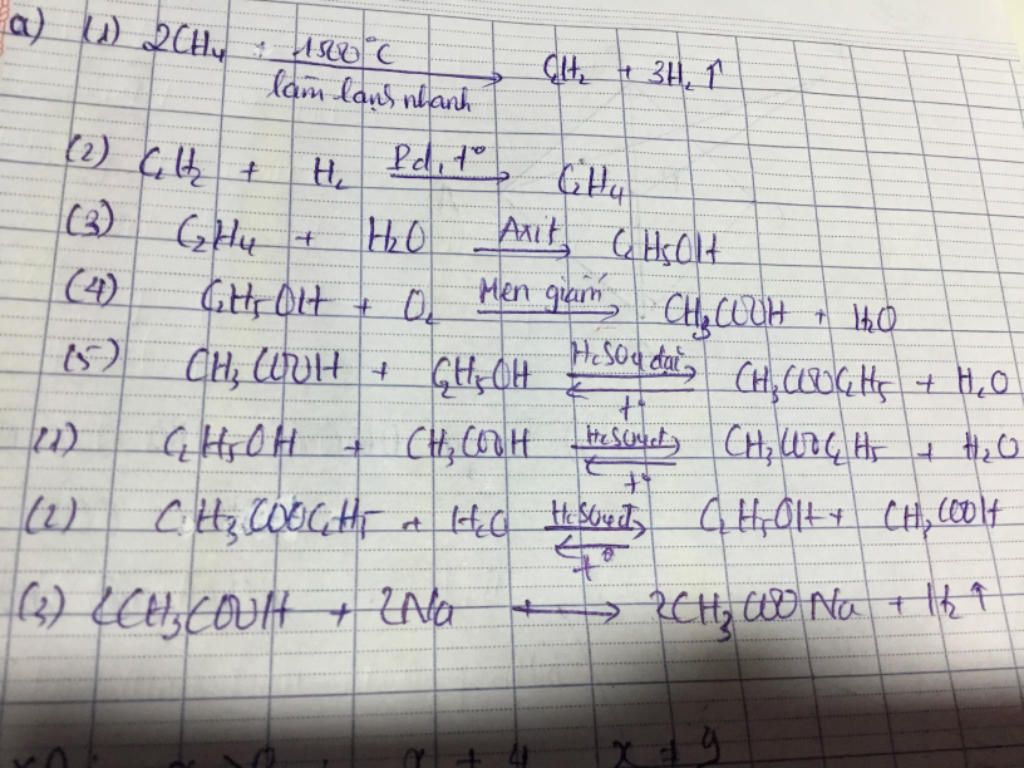 a) (1) 2CH4 1500°C làm lạnh nhanh → C2H2 + 3H2 ↑
(2) C2H2 + H2 Pd, t° → C2H4
(3) C2H4 + H2O Axit → C2H5OH
(4) C2H5OH + O2 Men giấm → CH3COOH + H2O
(5) CH3COOH + C2H5OH H2SO4 đặc ⇌ t° CH3COOC2H5 + H2O
(1) C2H5OH + CH3COOH H2SO4đ ⇌ t° CH3COOC2H5 + H2O
(2) CH3COOC2H5 + H2O H2SO4đ ⇌ t° C2H5OH + CH3COOH
(3) 2CH3COOH + 2Na → 2CH3COONa + H2 ↑
x + 4 x + 9